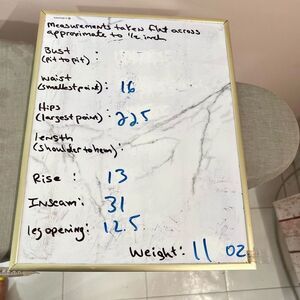 Measurements taken flat across
approximate to 1/2 inch
Bust :
(Pit to pit)
Waist : 16
(smallest point)
Hips : 22.5
(largest point)
length :
(Shoulder to hem)
Rise : 13
Inseam: 31
leg opening: 12.5
Weight: 11 oz